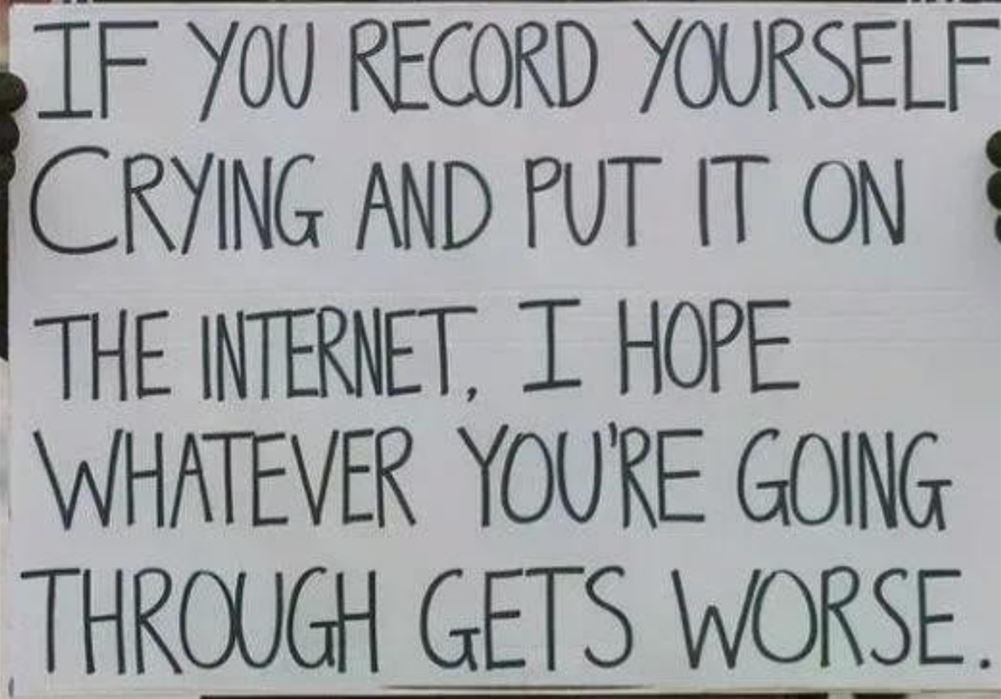 IF YOU RECORD YOURSELF
CRYING AND PUT IT ON
THE INTERNET, I HOPE
WHATEVER YOU'RE GOING
THROUGH GETS WORSE.